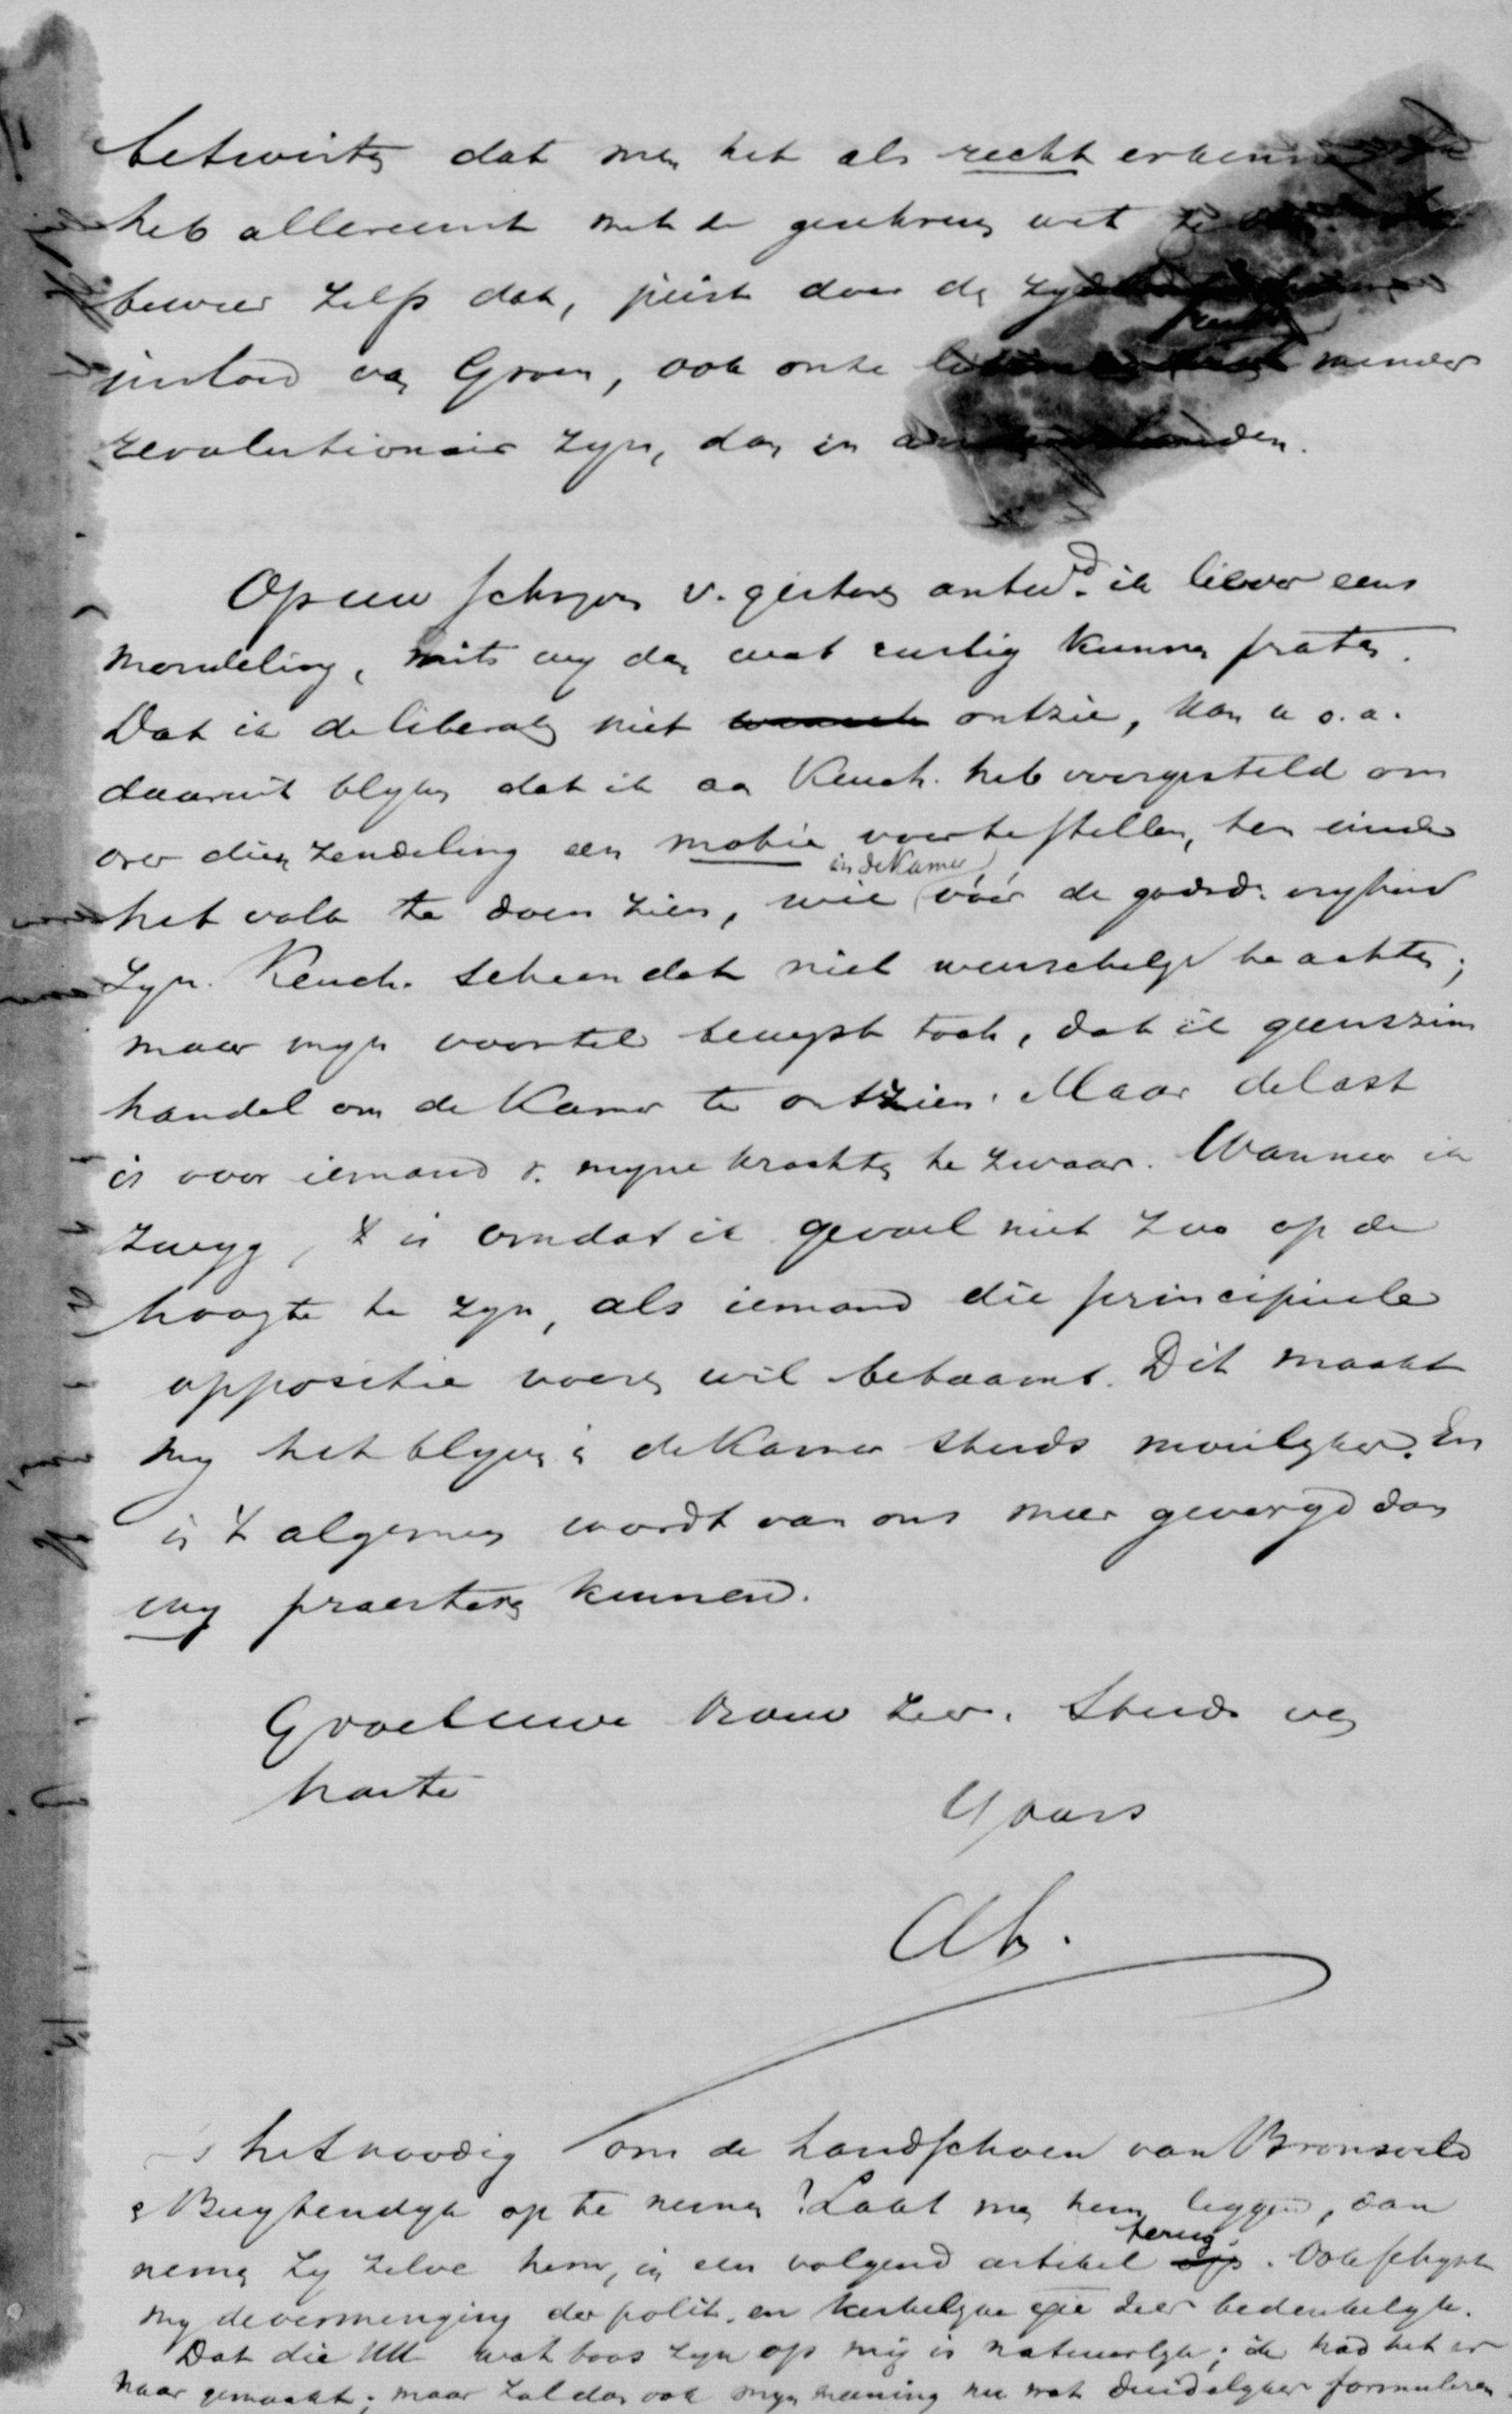 betwisten dat men het als recht erkenne
heb allereerst met de geschreven wet te
beweer zelfs dat, juist door den
invloed van Groen, ook onze minder
revolutionair zyn, dan in anderen.
Op uw schryven v. gisteren antwd. ik liever eens
mondeling, mits wy dan wat rustig kunnen praten.
Dat ik de liberalen niet ontzie, kan u o.a.
daaruit blyken dat ik aan Keuch. heb voorgesteld om
over dien zendeling een motie voortestellen, ten einde
het volk te doen zien, wie in de Kamer vóór de godsd. vryheid
zyn. Keuch. scheen dat niet wenschelyk te achten;
maar myn voorstel bewyst toch, dat ik geenszins
handel om de Kamer te ontzien. Maar de last
is voor iemand v. myne krachten te zwaar. Wanneer ik
zwyg, 't is omdat ik gevoel niet zoo op de
hoogte te zyn, als iemand die principieele
oppositie voeren wil betaamt. Dit maakt
my het blyven in de Kamer steeds moeilyker. En
in 't algemeen wordt van ons meer gevergd dan
wy praesteren kunnen.
Groet uwe vrouw zeer. Steeds van
harte
Yours
Is het noodig om de handschoen van Bronsveld
& Buytendyk op te nemen? Laat men hem liggen, dan
nemen zy zelve hem, in een volgend artikel op terug. Ook schynt
my de vermenging der polit. en kerkelyke zeer bedenkelyk.
Dat die HH wat boos zyn op mij is natuurlyk; ik had het er
naar gemaakt; maar zal dan ook myn meening nu wat duidelyker formuleren.